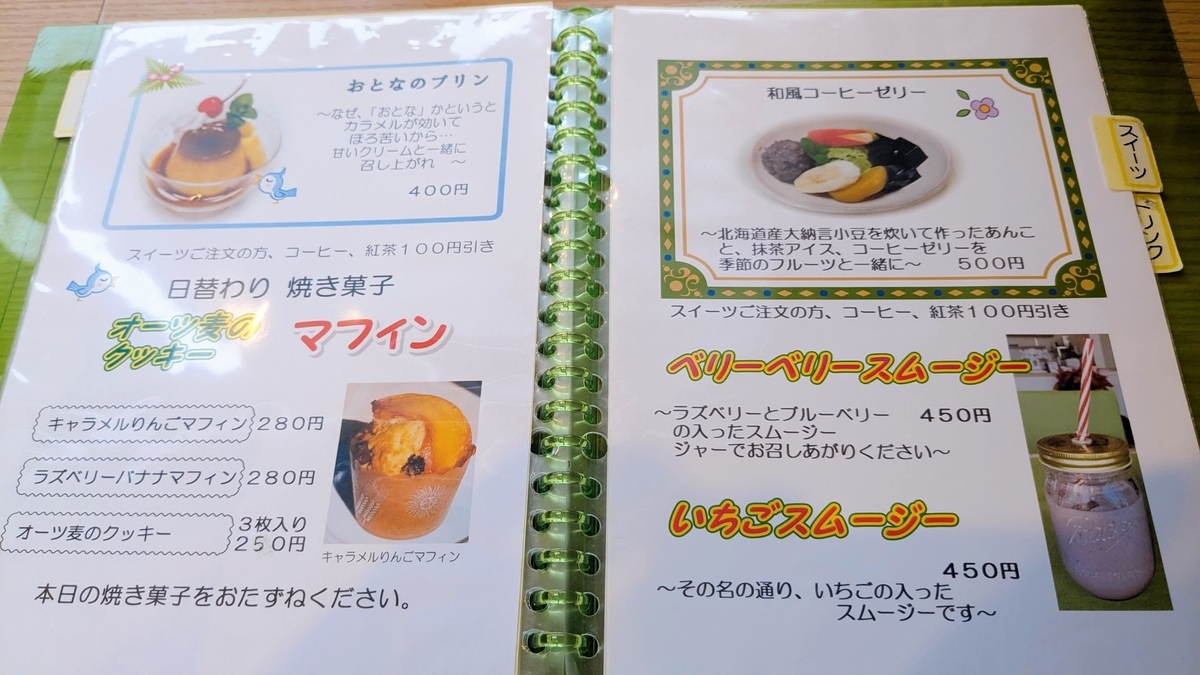 おとなのプリン
～なぜ、「おとな」かというと
カラメルが効いて
ほろ苦いから…
甘いクリームと一緒に
召し上がれ ～
400円
スイーツご注文の方、コーヒー、紅茶１００円引き
日替わり 焼き菓子
オーツ麦の
クッキー
マフィン
キャラメルりんごマフィン 280円
ラズベリーバナナマフィン 280円
オーツ麦のクッキー 3枚入り
250円
キャラメルりんごマフィン
本日の焼き菓子をおたずねください。
和風コーヒーゼリー
～北海道産大納言小豆を炊いて作ったあんこ
と、抹茶アイス、コーヒーゼリーを
季節のフルーツと一緒に～ 500円
スイーツご注文の方、コーヒー、紅茶１００円引き
ベリーベリースムージー
～ラズベリーとブルーベリー 450円
の入ったスムージー
ジャーでお召しあがりください～
いちごスムージー
450円
～その名の通り、いちごの入った
スムージーです～
スイーツ
ドリンク